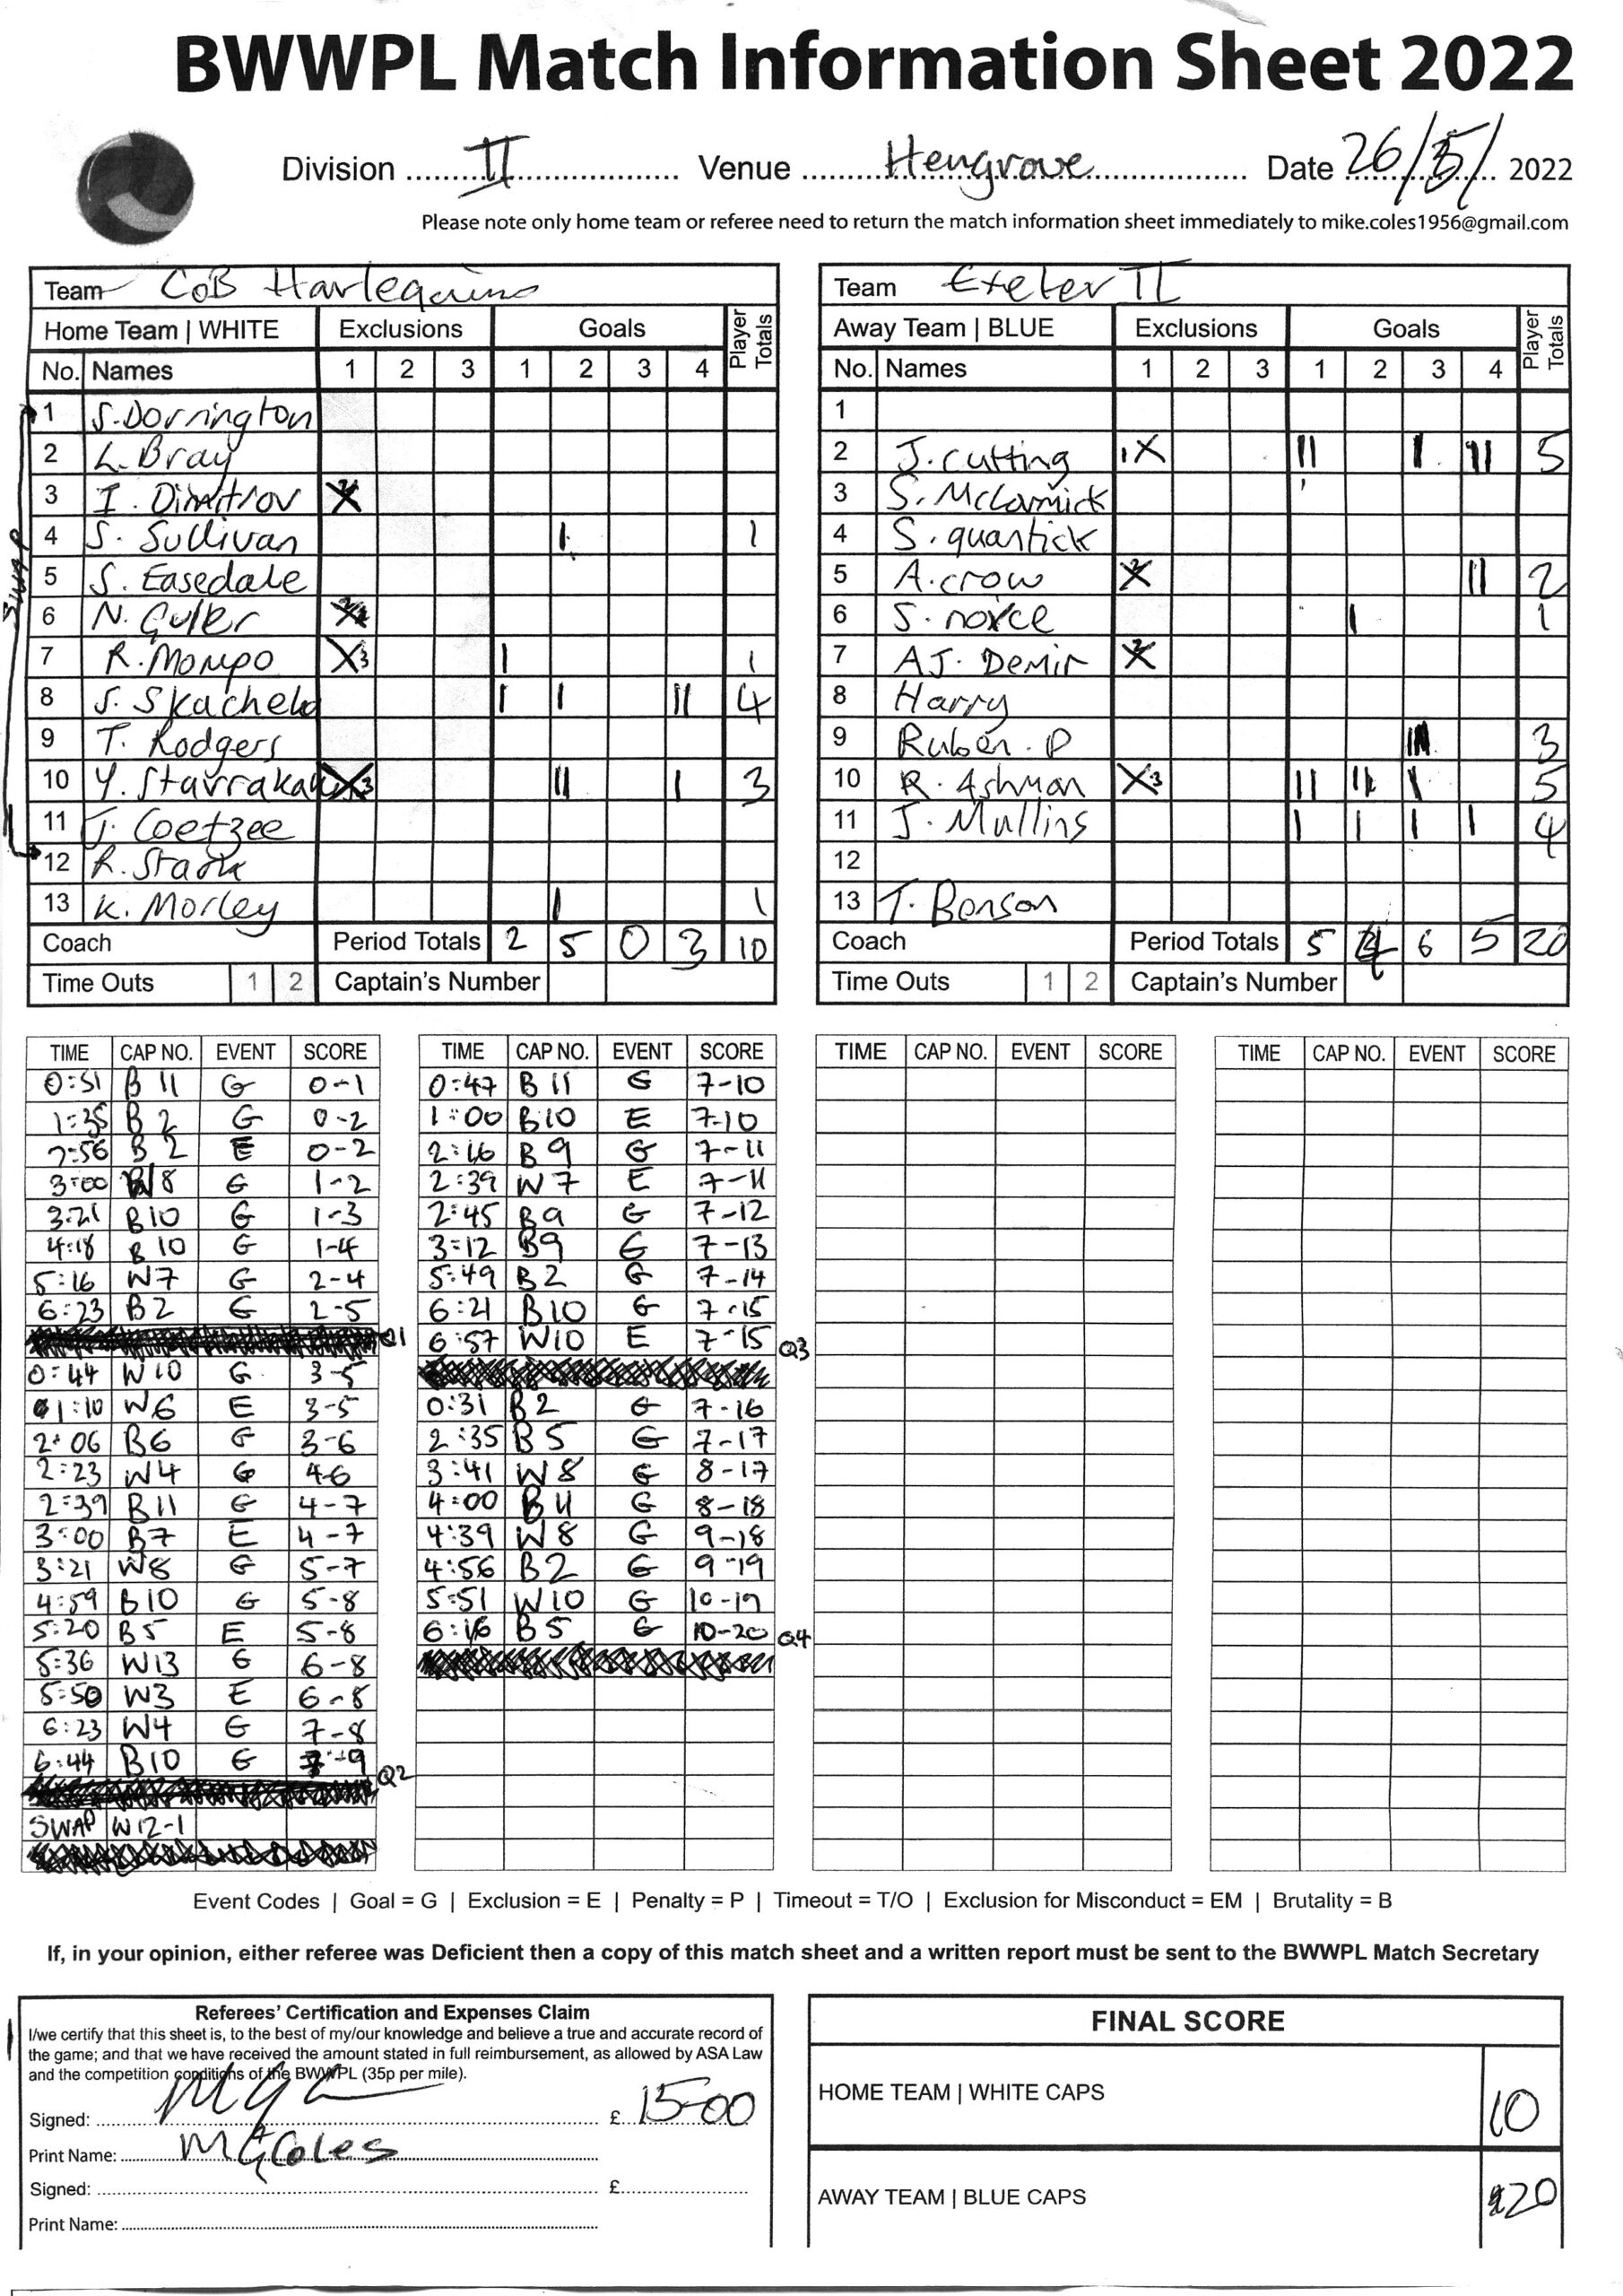 BWWPL Match Information Sheet 2022
Division II Venue Hengrove Date 26/5/ 2022
Please note only home team or referee need to return the match information sheet immediately to mike.coles1956@gmail.com
Team CoB Harlequins
Home Team | WHITE Exclusions Goals Player Totals
No. Names 1 2 3 1 2 3 4
SWAP
1 S. Dorrington
2 L. Bray
3 I. Dimitrov X 2
4 S. Sullivan I 1
5 S. Easedale
6 N. Guler X 2
7 R. Mompo X 3 I 1
8 S. Skachelo I I II 4
9 T. Rodgers
10 Y. Stavrakak X 3 II I 3
11 J. Coetzee
12 R. Stark
13 K. Morley I 1
Coach Period Totals 2 5 0 3 10
Time Outs 1 2 Captain's Number
Team Exeter II
Away Team | BLUE Exclusions Goals Player Totals
No. Names 1 2 3 1 2 3 4
1
2 J. Cutting 1 X II I II 5
3 S. McCormick
4 S. quantick
5 A. crow X 2 II 2
6 S. noyce I 1
7 AJ. Demir X 2
8 Harry
9 Ruben. P III 3
10 R. Ashman X 3 II II I 5
11 J. Mullins I I I I 4
12
13 T. Benson
Coach Period Totals 5 4 6 5 20
Time Outs 1 2 Captain's Number
TIME CAP NO. EVENT SCORE
0:51 B 11 G 0-1
1:35 B 2 G 0-2
2:56 B 2 E 0-2
3:00 W8 G 1-2
3:21 B10 G 1-3
4:18 B 10 G 1-4
5:16 W7 G 2-4
6:23 B2 G 2-5
Q1
0:44 W10 G 3-5
1:10 W6 E 3-5
2:06 B6 G 3-6
2:23 W4 G 4-6
2:39 B11 G 4-7
3:00 B7 E 4-7
3:21 W8 G 5-7
4:59 B10 G 5-8
5:20 B5 E 5-8
5:36 W13 G 6-8
5:50 W3 E 6-8
6:23 W4 G 7-8
6:44 B10 G 7-9
Q2
SWAP W12-1
TIME CAP NO. EVENT SCORE
0:47 B 11 G 7-10
1:00 B10 E 7-10
2:16 B 9 G 7-11
2:39 W7 E 7-11
2:45 B9 G 7-12
3:12 B9 G 7-13
5:49 B2 G 7-14
6:21 B10 G 7-15
6:57 W10 E 7-15 Q3
0:31 B2 G 7-16
2:35 B5 G 7-17
3:41 W8 G 8-17
4:00 B11 G 8-18
4:39 W8 G 9-18
4:56 B2 G 9-19
5:51 W10 G 10-19
6:16 B5 G 10-20 Q4
TIME CAP NO. EVENT SCORE
TIME CAP NO. EVENT SCORE
Event Codes | Goal = G | Exclusion = E | Penalty = P | Timeout = T/O | Exclusion for Misconduct = EM | Brutality = B
If, in your opinion, either referee was Deficient then a copy of this match sheet and a written report must be sent to the BWWPL Match Secretary
Referees' Certification and Expenses Claim
I/we certify that this sheet is, to the best of my/our knowledge and believe a true and accurate record of
the game; and that we have received the amount stated in full reimbursement, as allowed by ASA Law
and the competition conditions of the BWWPL (35p per mile).
Signed: £ 15-00
Print Name: M G Coles
Signed: £
Print Name:
FINAL SCORE
HOME TEAM | WHITE CAPS 10
AWAY TEAM | BLUE CAPS 20